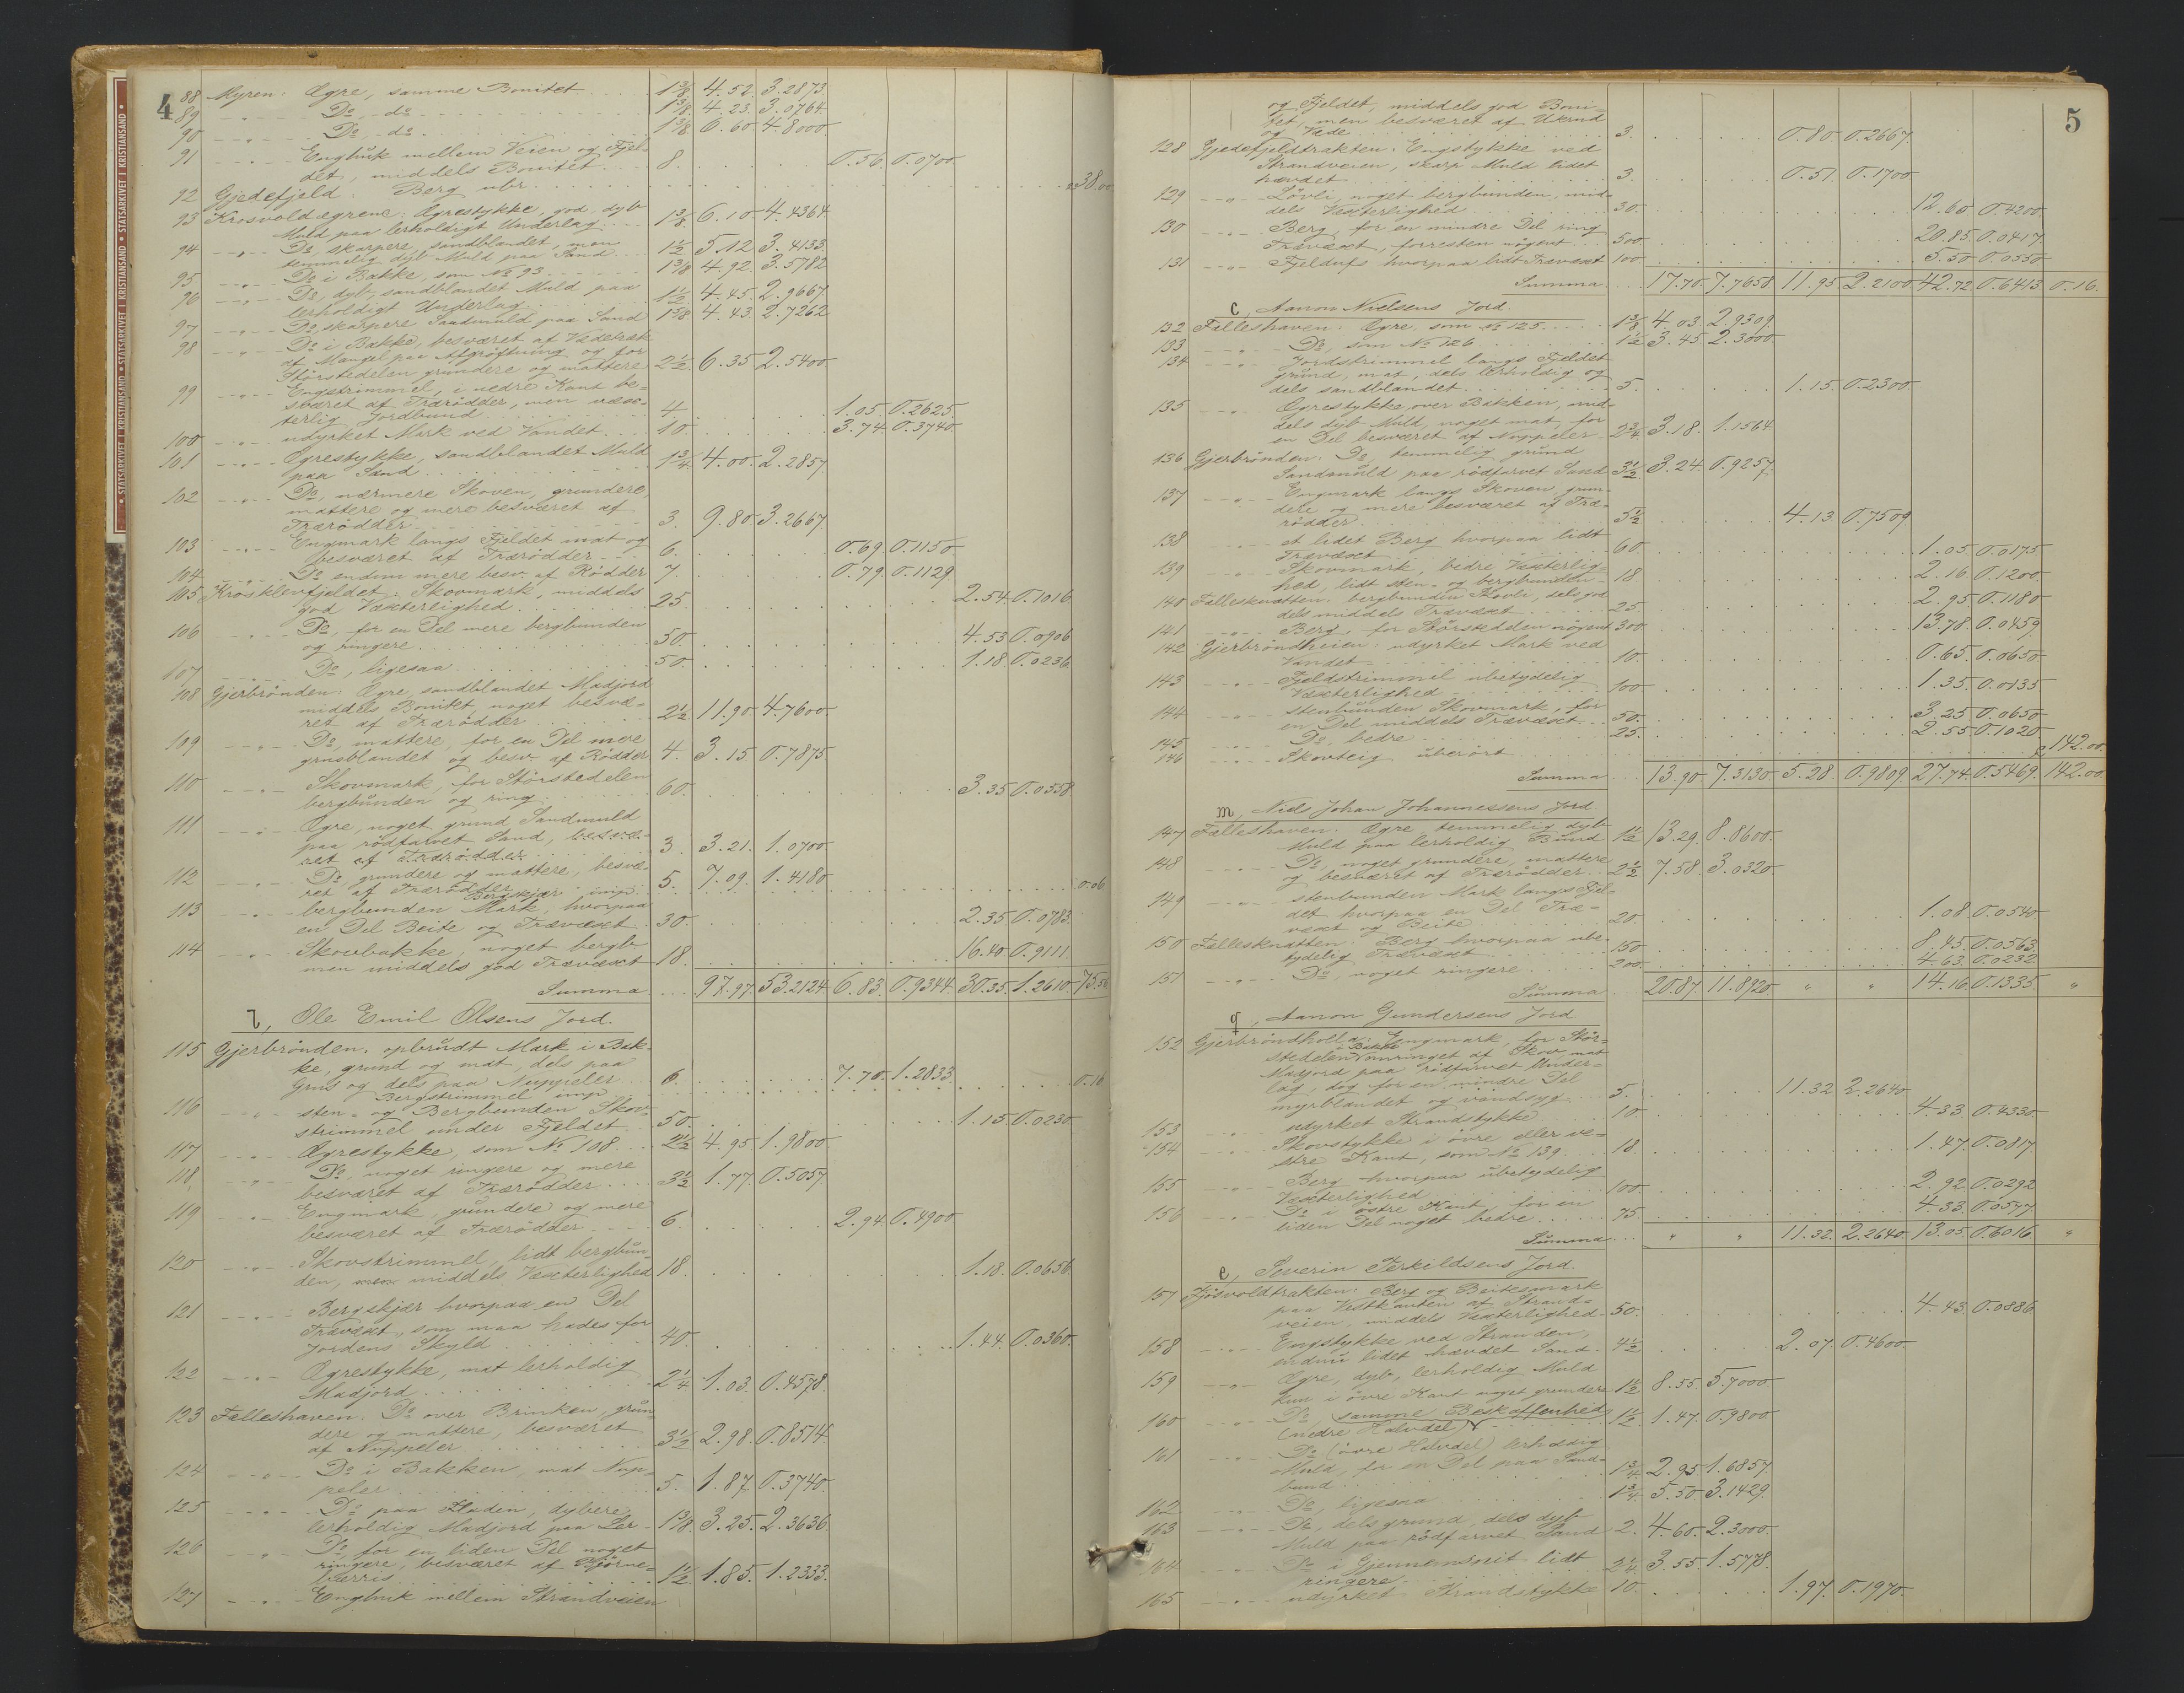 4
88 Myren: Agre, samme Bonitet 1 3/8 4.52. 3.2873.
89 Do, do 1 3/8 4.23. 3.0764.
90 Do, do 1 3/8 6.60 4.8000.
91 Enghuk mellem Veien og Fjel-
det, middels Bonitet 8. 0.56. 0.0700.
92 Gjedefjeld: Berg ubr. 38.00
93 Krosvoldagrene: Agrestykke, god, dyb
Muld paa lerholdigt Underlag 1 3/8 6.10 4.4364.
94 Do, skarpere, sandblandet, men
temmelig dyb Muld paa Sand 1 1/2 5.12 3.4133.
95 Do i Bakke, som No 93 1 3/8 4.92. 3.5782
96 Do, dyb, sandblandet Muld paa
lerholdigt Underlag 1 1/2 4.45. 2.9667.
97 Do, skarpere Sandmuld paa Sand 1 5/8 4.43. 2.7262
98 Do i Bakke, besværet af Vædetræk
af Mangel paa Afgrøftning og for
Størstedelen grundere og mattere 2 1/2 6.35 2.5400.
99 Engstrimmel, i nedre Kant be-
sværet af Trærødder, men væx-
terlig Jordbund 4. 1.05. 0.2625.
100 udyrket Mark ved Vandet 10. 3.74. 0.3740.
101 Agrestykke, sandblandet Muld
paa Sand 1 3/4 4.00. 2.2857.
102 Do, nærmere Skoven, grundere,
mattere og mere besværet af
Trærødder 3. 9.80 3.2667.
103 Engmark langs Fjeldet mat og
besværet af Trærødder 6. 0.69. 0.1150.
104 Do endnu mere besv. af Rødder 7. 0.79. 0.1129.
105 Krosklevfjeldet: Skovmark, middels
god Væxterlighed 25. 2.54. 0.1016.
106 Do, for en Del mere bergbunden
og ringere 50. 4.53 0.0906
107 Do, ligesaa 50. 1.18. 0.0236.
108 Gjerbrønden: Agre, sandblandet Madjord
middels Bonitet, noget besvæ-
ret af Trærødder 2 1/2 11.90. 4.7600.
109 Do, mattere, for en Del mere
grusblandet og besv. af Rødder 4. 3.15. 0.7875
110 Skovmark, for Størstedelen
bergbunden og ring 60. 3.35 0.0558.
111 Agre, noget grund Sandmuld
paa rødfarvet Sand, besvæ-
ret af Trærødder 3. 3.21. 1.0700.
112 Do, grundere og mattere, besvæ-
ret af Trærødder 5. 7.09. 1.4180.
Bergskjær imp. 0.06.
113 bergbunden Mark, hvorpaa
en Del Beite og Trævæxt 30. 2.35 0.0783.
114 Skovbakke, noget bergb.
men middels god Trævæxt 18. 16.40 0.9111.
Summa 97.97. 53.2124. 6.83. 0.9344. 30.35. 1.2610.
l, Ole Emil Olsens Jord.
115 Gjerbrønden: opbrudt Mark i Bak-
ke, grund og mat, dels paa
Grus og dels paa Nuppeler 6. 7.70. 1.2833.
Bergstrimmel imp. 0.16
116 sten- og Bergbunden Skov-
strimmel under Fjeldet 50. 1.15. 0.0230.
117 Agrestykke, som No 108 2 1/2 4.95. 1.9800.
118. Do, noget ringere og mere
besværet af Trærødder 3 1/2 1.77. 0.5057.
119 Engmark, grundere og mere
besværet af Trærødder 6. 2.94. 0.4900.
120 Skovstrimmel, lidt bergbun-
den, middels Væxterlighed 18. 1.18. 0.0656.
121 Bergskjær hvorpaa en Del
Trævæxt, som maa hades for
Jordens Skyld 40. 1.44. 0.0360.
122 Agrestykke, mat lerholdig
Madjord 2 1/4 1.03. 0.4578.
123 Felleshaven: Do over Brinken, grun-
dere og mattere, besværet
af Nuppeler 3 1/2 2.98. 0.8514.
124 Do i Bakken, mat Nup-
peler 5. 1.87. 0.3740.
125 Do paa Fladen, dybere,
lerholdig Madjord paa Ler 1 3/8 3.25. 2.3636.
126 Do for en liden Del noget
ringere, besværet af Bjørne-
bærris 1 1/2 1.85. 1.2333.
127 Enghuk mellem Strandveien
5
og Fjeldet, middels god Boni-
tet, men besværet af Ukrud
og Væde 3. 0.80. 0.2667.
128 Gjedefjeldtrakten: Engstykke ved
Strandveien, skarp Muld lidet
hævdet 3. 0.51. 0.1700.
129 Løvli, noget bergbunden, mid-
dels Væxterlighed 30. 12.60 0.4200.
130 Berg, for en mindre Del ring
Trævæxt, forresten nøgent 500. 20.85. 0.0417.
131 Fjeldufs hvorpaa lidt Trævæxt 100. 5.50 0.0550
Summa 17.70. 7.7658 11.95. 2.2100 42.72. 0.6413 0.16.
c, Aanon Nielsens Jord.
132 Felleshaven: Agre, som No 125 1 3/8 4.03. 2.9309.
133 Do, som No 126 1 1/2 3.45. 2.3000.
134 Jordstrimmel langs Fjeldet
grund, mat, dels lerholdig og
dels sandblandet 5. 1.15. 0.2300.
135 Agrestykke over Bakken, mid-
dels dyb Muld, noget mat, for
en Del besværet af Nuppeler 2 3/4 3.18. 1.1564
136 Gjerbrønden: Do, temmelig grund
Sandmuld paa rødfarvet Sand 3 1/2 3.24. 0.9257.
137 Engmark langs Skoven, grun-
dere og mere besværet af Træ-
rødder 5 1/2 4.13. 0.7509
138 et lidet Berg hvorpaa lidt
Trævæxt 60. 1.05. 0.0175
139 Skovmark, bedre Væxterlig-
hed, lidt sten- og bergbunden 18 2.16. 0.1200.
140 Fellesknatten: bergbunden Skovli, dels god
dels middels Trævæxt 25. 2.95. 0.1180
141 Berg, for Størstedelen nøgent 300. 13.78. 0.0459.
142 Gjerbrøndheien: udyrket Mark ved
Vandet 10. 0.65. 0.0650
143 Fjeldstrimmel ubetydelig
Væxterlighed 100. 1.35. 0.0135
144 stenbunden Skovmark, for
en Del middels Trævæxt 50. 3.25 0.0650
145 Do, bedre 25. 2.55 0.1020
146 Skovteig uberørt 142.00.
Summa 13.90 7.3130. 5.28. 0.9809. 27.74. 0.5469. 142.00.
m, Niels Johan Johannessens Jord.
147 Felleshaven: Agre temmelig dyb
Muld paa lerholdig Bund 1 1/2 13.29. 8.8600.
148 Do, noget grundere, mattere
og besværet af Trærødder 2 1/2 7.58. 3.0320.
149 stenbunden Mark langs Fjel-
det hvorpaa en Del Træ-
væxt og Beite 20 1.08 0.0540
150 Fellesknatten: Berg hvorpaa ube-
tydelig Trævæxt 150 8.45 0.0563.
151 Do, noget ringere 200. 4.63. 0.0232.
Summa 20.87. 11.8920. " " 14.16. 0.1335. "
g, Aanon Gundersens Jord
152 Gjerbrøndholla: Engmark, for Stør-
stedelen i Bakke omringet af Skov, mat
Madjord paa rødfarvet Under-
lag, dog for en mindre Del
myrblandet og vandsyg 5. 11.32 2.2640.
153 udyrket Strandstykke 10 4.33 0.4330.
154 Skovstykke i øvre eller ve-
stre Kant, som No 139 18. 1.47. 0.0817.
155 Berg hvorpaa ubetydelig
Væxterlighed 100. 2.92 0.0292
156 Do i østre Kant, for en
liden Del noget bedre 75. 4.33. 0.0577
Summa " " 11.32. 2.2640. 13.05. 0.6016 "
e, Severin Terkildsens Jord.
157 Fjøsvoldtrakten: Berg og Beitesmark
paa Vestkanten af Strand-
veien, middels Væxterlighed 50. 4.43. 0.0886
158 Engstykke ved Stranden,
endnu lidet hævdet Sand 4 1/2 2.07. 0.4600.
159 Agre, dyb, lerholdig Muld
kun i øvre Kant noget grundere 1 1/2 8.55. 5.7000.
160 Do, samme Beskaffenhed
(nedre Halvdel) 1 1/2 1.47. 0.9800.
161 Do (øvre Halvdel) lerholdig
Muld, for en Del paa Sand-
bund 1 3/4 2.95 1.6857.
162 Do, ligesaa 1 3/4 5.50 3.1429.
163 Do, dels grund, dels dyb
Muld paa rødfarvet Sand 2. 4.60. 2.3000.
164 Do i Gjennemsnit lidt
ringere 2 1/4 3.55. 1.5778.
165 udyrket Strandstykke 10. 1.97. 0.1970.
• STATSARKIVET I KRISTIANSAND • STATSARKIVET I KRISTIANSAND • STATSARKIVET I KRISTIANSAND •